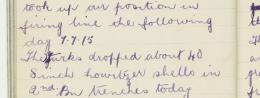 took up our position in
firing line the following
day 7.7.15
The Turks dropped about 40
8 inch howitzer shells in
2nd Bn trenches today